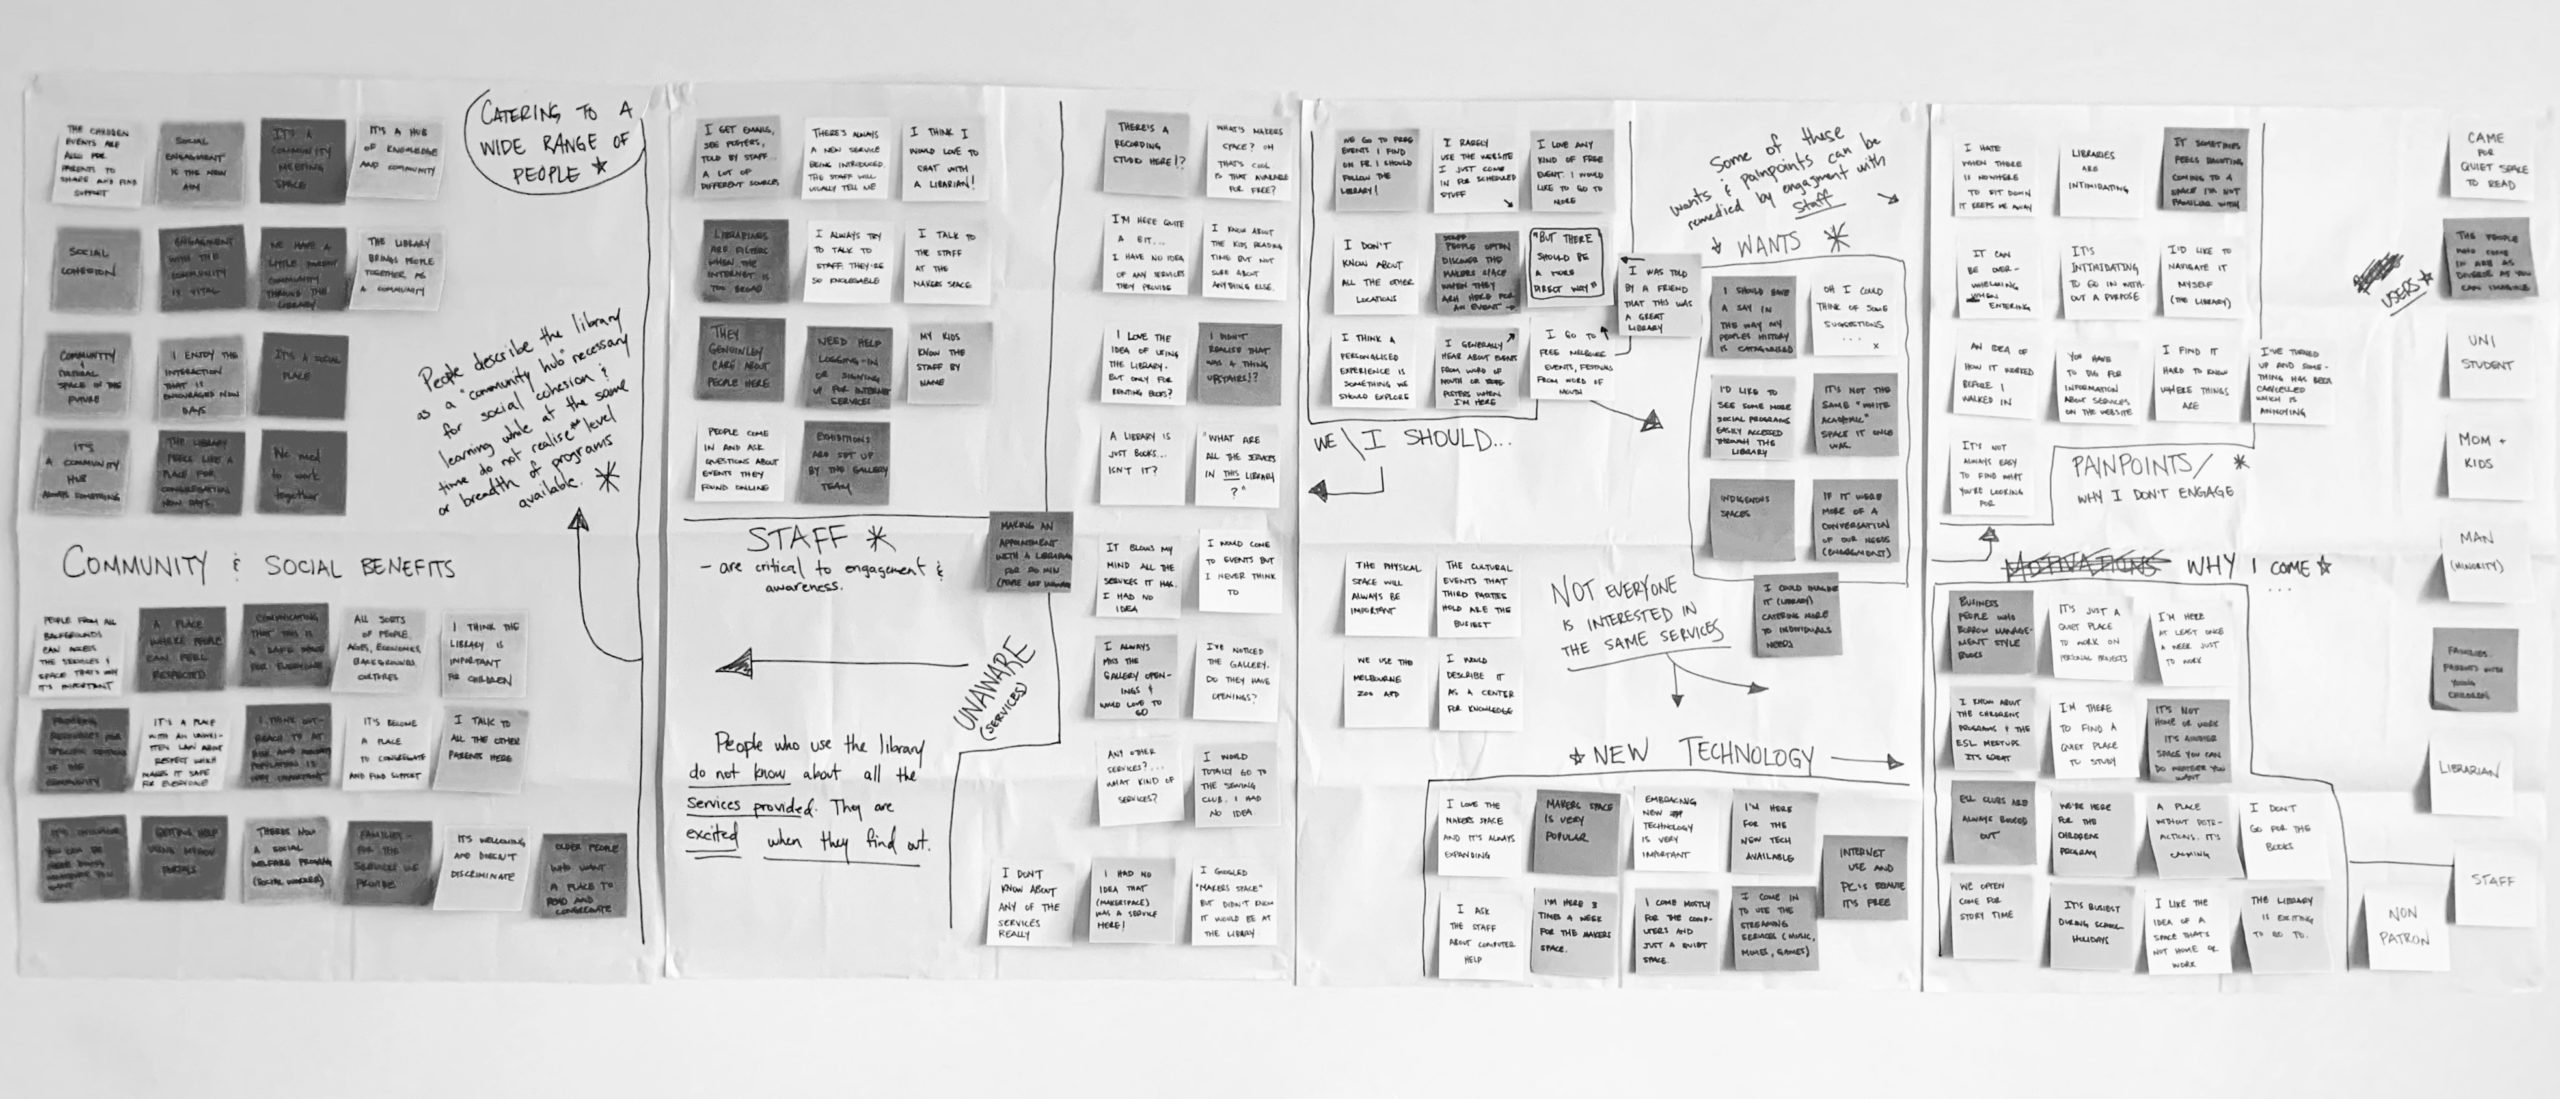 THE CHILDREN
EVENTS ARE
ALSO FOR
PARENTS TO
SHARE AND FIND
SUPPORT
SOCIAL
ENGAGMENT
IS THE NEW
AIM
IT'S A
COMMUNITY
MEETING
SPACE
IT'S A HUB
OF KNOWLEDGE
AND COMMUNITY
CATERING TO A
WIDE RANGE OF
PEOPLE
SOCIAL
COHESION
ENGAGMENT
WITH THE
COMMUNITY
IS VITAL
WE HAVE A
LITTLE
COMMUNITY
THROUGH THE
LIBRARY
THE LIBRARY
BRINGS PEOPLE
TOGETHER AS
A COMMUNITY
COMMUNITY
CULTURAL
SPACE IN THE
FUTURE
I ENJOY THE
INTERACTION
THAT IS
ENCOURAGED NOW
DAYS
IT'S A SOCIAL
PLACE
IT'S
A COMMUNITY
HUB
ALWAYS SOMETHING
THE LIBRARY
FEELS LIKE A
PLACE FOR
CONGREGATION
NOW DAYS.
We need
to work
together
People describe the library
as a "community hub" necessary
for social cohesion &
learning while at the same
time do not realise level
or breadth of programs
available.
COMMUNITY & SOCIAL BENEFITS
PEOPLE FROM ALL
BACKGROUNDS
CAN ACCESS
THE SERVICES &
SPACE THATS WHY
IT'S IMPORTANT
A PLACE
WHERE PEOPLE
CAN FEEL
RESPECTED
COMMUNICATING
THAT THIS IS
A SAFE PLACE
FOR EVERYONE
ALL SORTS
OF PEOPLE.
AGES, ECONOMICS,
BACKGROUNDS,
CULTURES
I THINK THE
LIBRARY IS
IMPORTANT
FOR CHILDREN
OF THE
COMMUNITY
IT'S A PLACE
WITH AN UNWRI-
TTEN LAW ABOUT
RESPECT WHICH
MAKES IT SAFE
FOR EVERYONE
I THINK OUT-
REACH TO AT
RISK AND
POPULATION IS
VERY IMPORTANT
IT'S BECOME
A PLACE
TO CONGREGATE
AND FIND SUPPORT
I TALK TO
ALL THE OTHER
PARENTS HERE
GETTING HELP
USING
PORTALS
THERES NOW
A SOCIAL
WELFARE PROGRAM
(SOCIAL WORKER)
FAMILIES-
FOR THE
SERVICES WE
PROVIDE
IT'S WELCOMING
AND DOESN'T
DISCRIMINATE
OLDER PEOPLE
WHO WANT
A PLACE TO
READ AND
CONGREGATE
I GET EMAILS,
SEE POSTERS,
TOLD BY STAFF...
A LOT OF
DIFFERENT SOURCES
THERE'S ALWAYS
A NEW SERVICE
BEING INTRODUCED.
THE STAFF WILL
USUALLY TELL ME
I THINK I
WOULD LOVE TO
CHAT WITH
A LIBRARIAN!
LIBRARIANS
ARE FILTERS
WHEN THE
INTERNET IS
TOO BROAD
I ALWAYS TRY
TO TALK TO
STAFF. THEY'RE
SO KNOLEGABLE
I TALK TO
THE STAFF
AT THE
MAKERS SPACE
THEY
GENUINLEY
CARE ABOUT
PEOPLE HERE
NEED HELP
LOGGING-IN
OR SIGNING
UP FOR INTERNET
SERVICES
MY KIDS
KNOW THE
STAFF BY
NAME
PEOPLE COME
IN AND ASK
QUESTIONS ABOUT
EVENTS THEY
FOUND ONLINE
EXHIBITIONS
ARE SET UP
BY THE GALLERY
TEAM
STAFF
– are critical to engagement &
awareness.
MAKING AN
APPOINTMENT
WITH A LIBRARIAN
FOR 30 MIN
UNAWARE
(SERVICES)
People who use the library
do not know about all the
services provided. They are
excited when they find out.
THERE'S A
RECORDING
STUDIO HERE!?
WHAT'S MAKERS
SPACE? OH
THAT'S COOL
IS THAT AVAILABLE
FOR FREE?
I'M HERE QUITE
A BIT...
I HAVE NO IDEA
OF ANY SERVICES
THEY PROVIDE
I KNOW ABOUT
THE KIDS READING
TIME BUT NOT
SURE ABOUT
ANYTHING ELSE.
I LOVE THE
IDEA OF USING
THE LIBRARY.
BUT ONLY FOR
RENTING BOOKS?
I DIDN'T
REALISE THAT
WAS A THING
UPSTAIRS!?
A LIBRARY IS
JUST BOOKS...
ISN'T IT?
"WHAT ARE
ALL THE SERVICES
IN THIS LIBRARY
?"
IT BLOWS MY
MIND ALL THE
SERVICES IT HAS.
I HAD NO
IDEA
I WOULD COME
TO EVENTS BUT
I NEVER THINK
TO
I ALWAYS
MISS THE
GALLERY OPEN-
INGS &
WOULD LOVE TO
GO
I'VE NOTICED
THE GALLERY.
DO THEY HAVE
OPENINGS?
ANY OTHER
SERVICES?...
WHAT KIND OF
SERVICES?
I WOULD
TOTALLY GO TO
THE SEWING
CLUB. I HAD
NO IDEA
I DON'T
KNOW ABOUT
ANY OF THE
SERVICES
REALLY
I HAD NO
IDEA THAT
(MAKERSPACE)
WAS A SERVICE
HERE!
I GOOGLED
"MAKERS SPACE"
BUT DIDN'T KNOW
IT WOULD BE AT
THE LIBRARY
WE GO TO FREE
EVENTS I FIND
ON FB. I SHOULD
FOLLOW THE
LIBRARY!
I RARELY
USE THE WEBSITE
I JUST COME
IN FOR SCHEDULED
STUFF
I LOVE ANY
KIND OF FREE
EVENT. I WOULD
LIKE TO GO TO
MORE
I DON'T
KNOW ABOUT
ALL THE OTHER
LOCATIONS
PEOPLE OFTEN
DISCOVER THE
MAKERS SPACE
WHEN THEY
ARE HERE FOR
AN EVENT
"BUT THERE
SHOULD BE
A MORE
DIRECT WAY"
I THINK A
PERSONALISED
EXPERIENCE IS
SOMETHING WE
SHOULD EXPLORE
I GENERALLY
HEAR ABOUT EVENTS
FROM WORD OF
MOUTH OR
POSTERS WHEN
I'M HERE
I GO TO
FREE MELBOURNE
EVENTS, FESTIVALS
FROM WORD OF
MOUTH
I WAS TOLD
BY A FRIEND
THAT THIS WAS
A GREAT
LIBRARY
WE \ I SHOULD...
Some of these
wants & painpoints can be
remedied by engagment with
Staff
WANTS
I SHOULD HAVE
A SAY IN
THE WAY MY
PEOPLES HISTORY
IS CATAGORISED
OH I COULD
THINK OF SOME
SUGGESTIONS
...
I'D LIKE TO
SEE SOME MORE
SOCIAL PROGRAMS
EASILY ACCESSED
THROUGH THE
LIBRARY
IT'S NOT THE
SAME "WHITE
ACADEMIC"
SPACE IT ONCE
WAS.
INDIGENOUS
SPACES
IF IT WERE
MORE OF A
CONVERSATION
OF OUR NEEDS
(ENGAGEMENT)
I COULD IMAGINE
IT (LIBRARY)
CATERING MORE
TO INDIVIDUALS
NEEDS
THE PHYSICAL
SPACE WILL
ALWAYS BE
IMPORTANT
THE CULTURAL
EVENTS THAT
THIRD PARTIES
HOLD ARE THE
BUSIEST
WE USE THE
MELBOURNE
ZOO APP
I WOULD
DESCRIBE IT
AS A CENTER
FOR KNOWLEDGE
NOT EVERYONE
IS INTERESTED IN
THE SAME SERVICES
NEW TECHNOLOGY
I LOVE THE
MAKERS SPACE
AND IT'S ALWAYS
EXPANDING
MAKERS SPACE
IS VERY
POPULAR
EMBRACING
NEW
TECHNOLOGY
IS VERY
IMPORTANT
I'M HERE
FOR THE
NEW TECH
AVAILABLE
INTERNET
USE AND
PC'S BECAUSE
IT'S FREE
I ASK
THE STAFF
ABOUT COMPUTER
HELP
I'M HERE 3
TIMES A WEEK
FOR THE MAKERS
SPACE.
I COME MOSTLY
FOR THE COMP-
UTERS AND
JUST A QUIET
SPACE.
I COME IN
TO USE THE
STREAMING
SERVICES (MUSIC,
MOVIES, GAMES)
I HATE
WHEN THERE
IS NOWHERE
TO SIT DOWN
IT KEEPS ME AWAY
LIBRARIES
ARE
INTIMIDATING
IT SOMETIMES
FEELS DAUNTING
COMING TO A
SPACE I'M NOT
FAMILIAR WITH
IT CAN
BE OVER-
WHELMING
WHEN
ENTERING
IT'S
INTIMIDATING
TO GO IN WITH-
OUT A PURPOSE
I'D LIKE TO
NAVIGATE IT
MYSELF
(THE LIBRARY)
AN IDEA OF
HOW IT WORKED
BEFORE I
WALKED IN
YOU HAVE
TO DIG FOR
INFORMATION
ABOUT SERVICES
ON THE WEBSITE
I FIND IT
HARD TO KNOW
WHERE THINGS
ARE
I'VE TURNED
UP AND SOME-
THING HAS BEEN
CANCELLED
WHICH IS
ANNOYING
IT'S NOT
ALWAYS EASY
TO FIND WHAT
YOU'RE LOOKING
FOR
PAINPOINTS/
WHY I DON'T ENGAGE
MOTIVATIONS WHY I COME
...
BUSINESS
PEOPLE WHO
BORROW MANAGE-
MENT STYLE
BOOKS
IT'S JUST A
QUIET PLACE
TO WORK ON
PERSONAL PROJECTS
I'M HERE
AT LEAST ONCE
A WEEK JUST
TO WORK
I KNOW ABOUT
THE CHILDRENS
PROGRAMS & THE
ESL MEETUPS.
IT'S GREAT
I'M THERE
TO FIND A
QUIET PLACE
TO STUDY
IT'S NOT
HOME OR WORK
IT'S ANOTHER
SPACE YOU CAN
DO WHATEVER YOU
WANT
ESL CLUBS ARE
ALWAYS BOOKED
OUT
WE'RE HERE
FOR THE
CHILDRENS
PROGRAM
A PLACE
WITHOUT DISTR-
ACTIONS. IT'S
CALMING
I DON'T
GO FOR THE
BOOKS
WE OFTEN
COME FOR
STORY TIME
IT'S BUSIEST
DURING SCHOOL
HOLIDAYS
I LIKE THE
IDEA OF A
SPACE THAT'S
NOT HOME OR
WORK
THE LIBRARY
IS EXCITING
TO GO TO.
USERS
CAME
FOR
QUIET SPACE
TO READ
THE PEOPLE
WHO COME
IN ARE AS
DIVERSE AS YOU
CAN IMAGINE
UNI
STUDENT
MOM +
KIDS
MAN
(MINORITY)
FAMILIES.
PARENTS WITH
YOUNG
CHILDREN
LIBRARIAN
STAFF
NON
PATRON